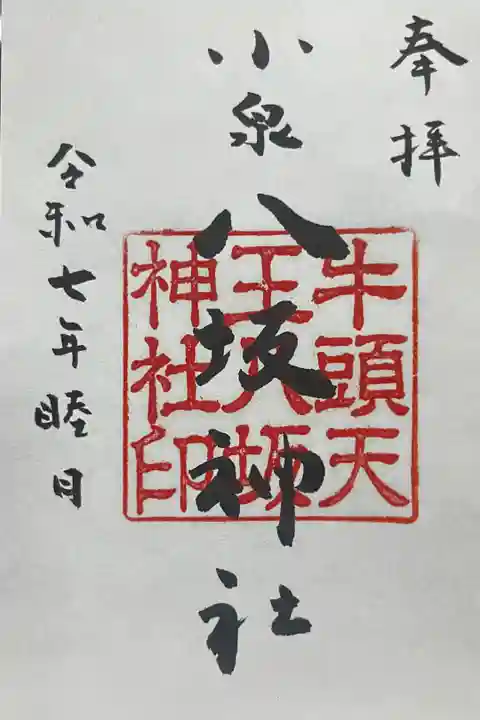 奉拝
小泉八坂神社
牛頭天
王八坂
神社印
令和七年睦月